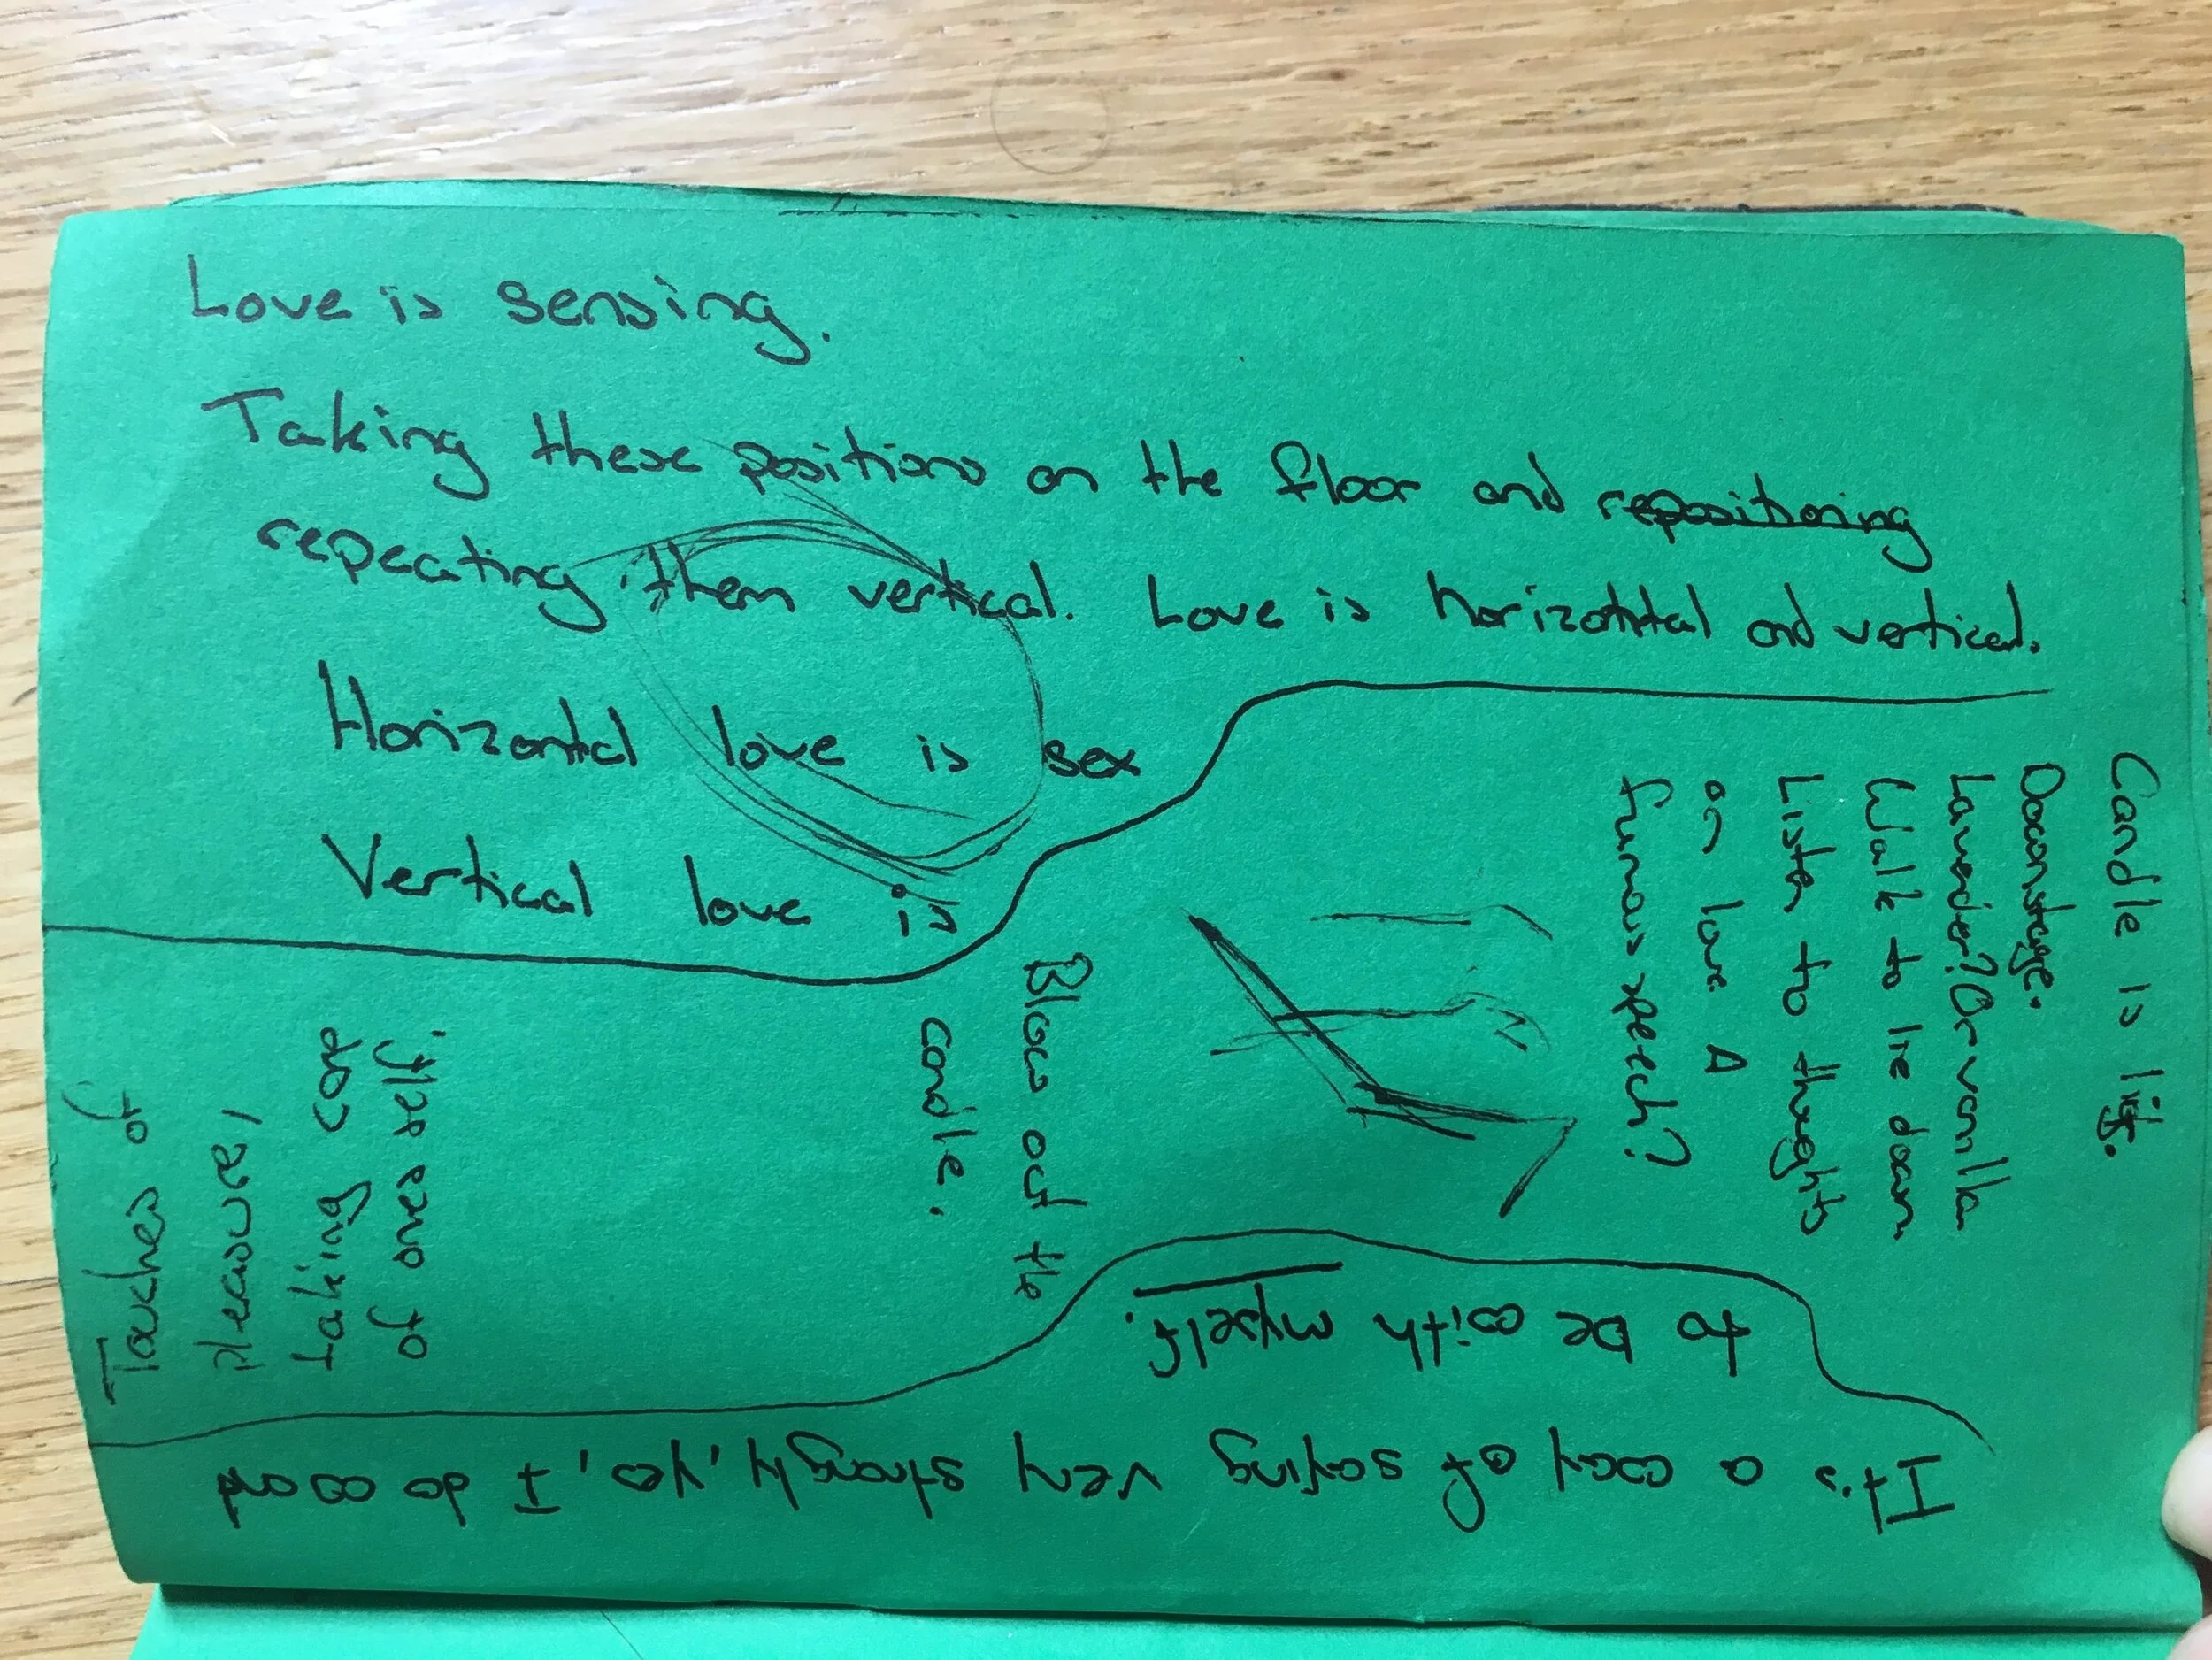 Love is sensing.
Taking these positions on the floor and repositioning
repeating them vertical. Love is horizontal and vertical.
Horizontal love is sex
Vertical love is
Candle is lit.
Downstage.
Lavender? Or vanilla
Walk to lie down
Listen to thoughts
on love A
famous speech?
Blow out the
candle.
Touches of
pleasure,
taking care
of ones self.
It's a way of saying very strongly, 'yes, I do want
to be with myself.